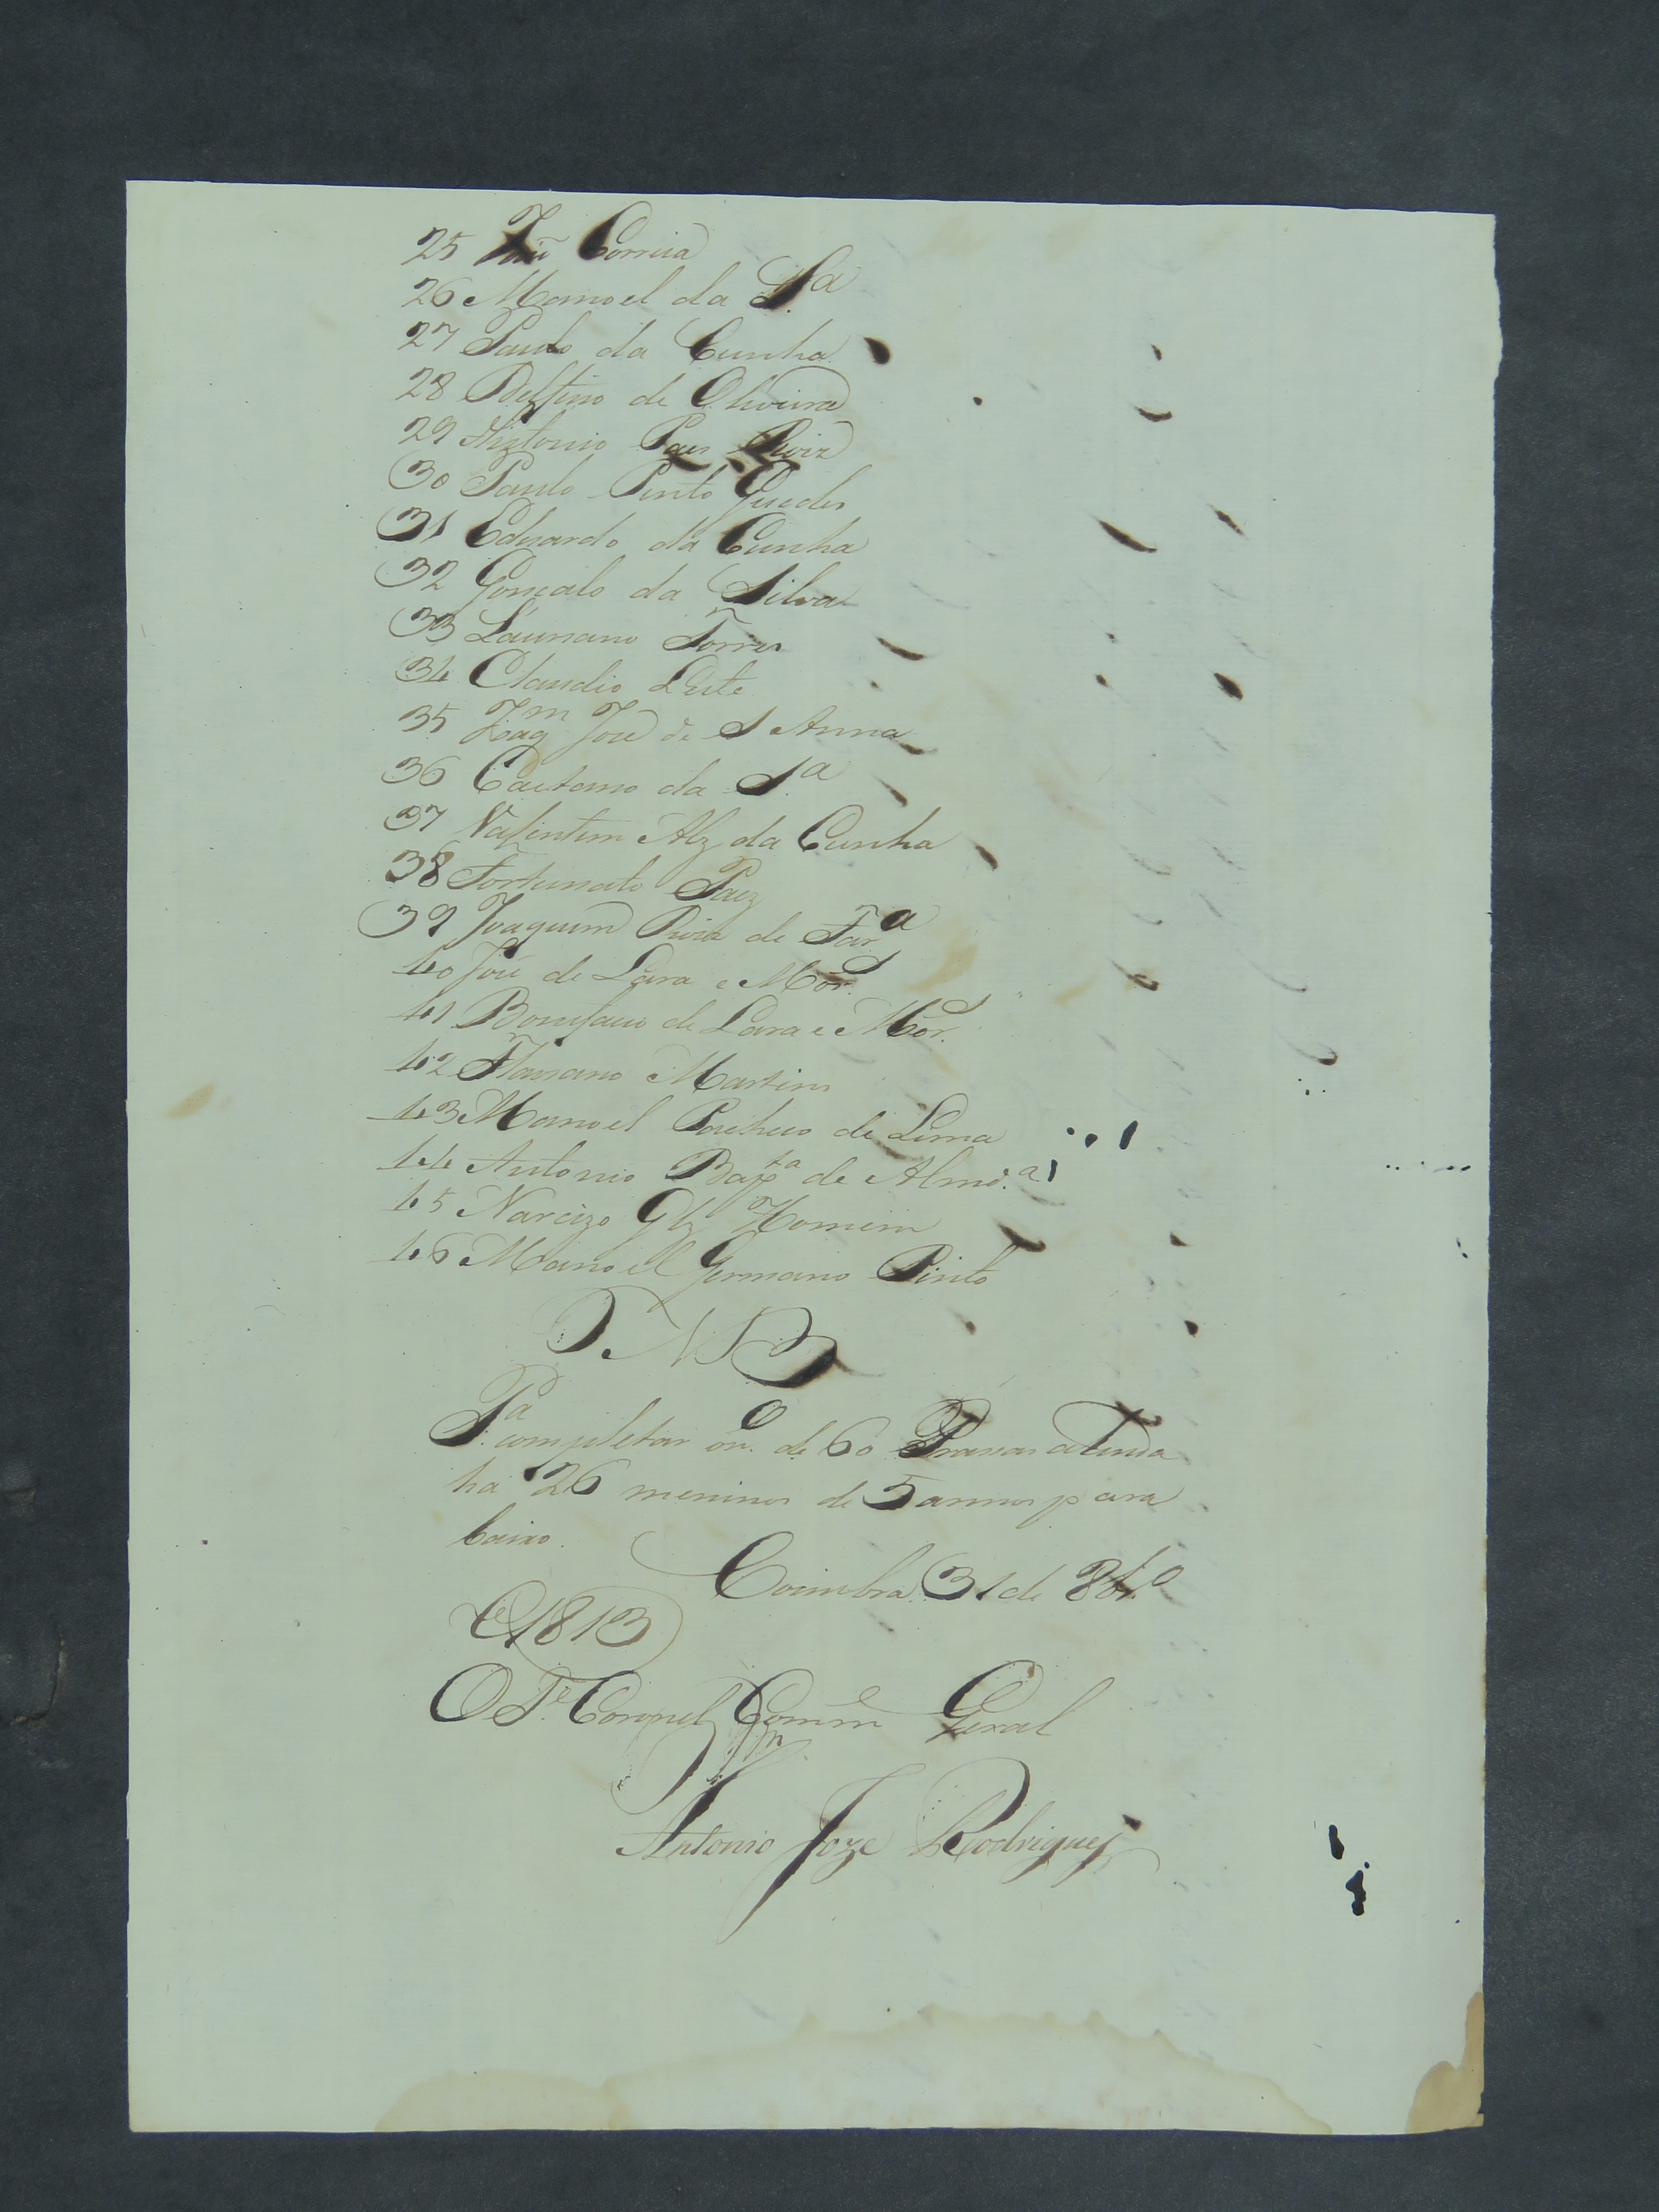 25 José Correia
26 Manoel da S.ª
27 Paulo da Cunha
28 Delfino de Oliveira
29 Antonio Paes
30 Paulo Pinto Guedes
31 Eduardo da Cunha
32 Gonçalo da Silva
33 Lauriano Torres
34 Claudio Leite
35 Joaq.m José de S Anna
36 Caetano da S.ª
37 Valentim Alz da Cunha
38 Fortunato Paez
39 Joaquim de Far.ª
40 José de Lara e Mor.s
41 Bonifacio de Lara e Mor.s
42 Floriano Martins
43 Manoel Pacheco de Lima
44 Antonio Bap.ta de Almd.ª
45 Narcizo Glz Homem
46 Manoel Germano Pinto
NB
P.ª completar o n.º de 60 Prasas ainda
ha 26 meninos de 5 annos para
baixo.
Coimbra 31 de 8br.º
de 1813
O T.e Coronel Comm.e Geral
Antonio Joze Rodrigues